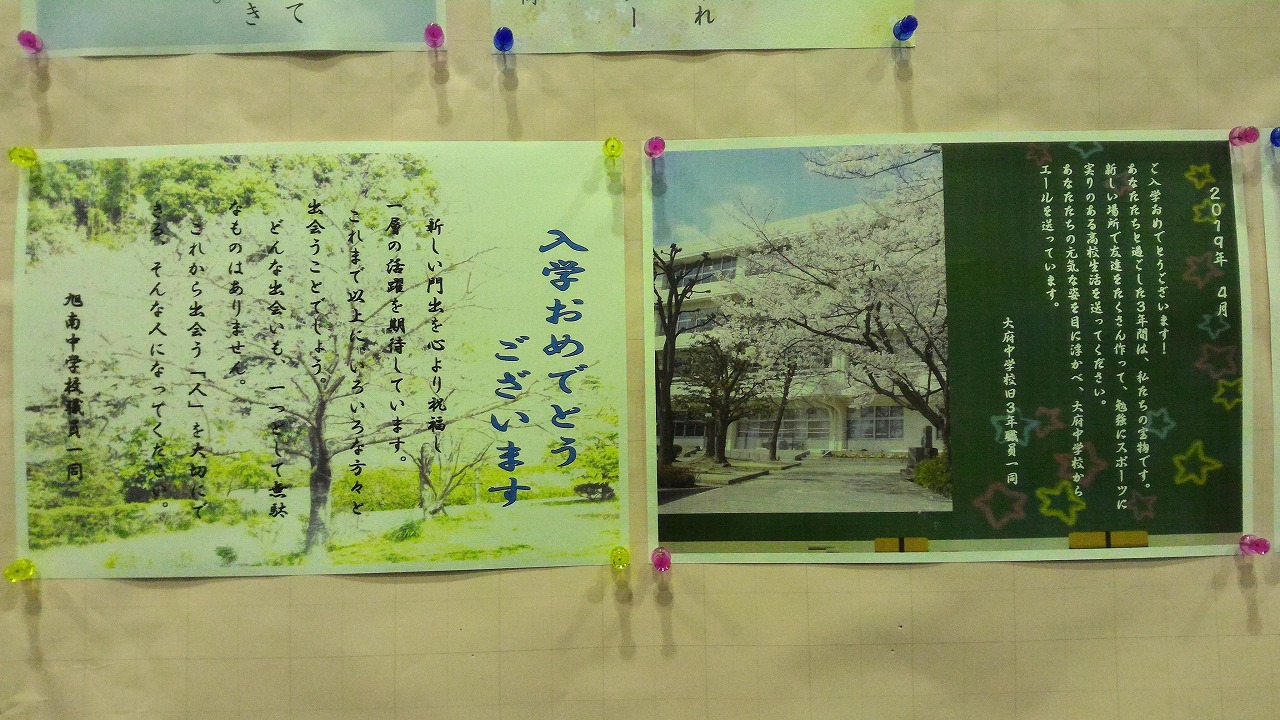 てき。
れー
入学おめでとう
ございます
新しい門出を心より祝福し
一層の活躍を期待しています。
これまで以上に、いろいろな方々と
出会うことでしょう。
どんな出会いも、一つとして無駄
なものはありません。
これから出会う「人」を大切にで
きる、そんな人になってください。
旭南中学校職員一同
2019年 4月
ご入学おめでとうございます！
あなたたちと過ごした3年間は、私たちの宝物です。
新しい場所で友達をたくさん作って、勉強にスポーツに
実りのある高校生活を送ってください。
あなたたちの元気な姿を目に浮かべ、大府中学校から
エールを送っています。
大府中学校旧3年職員一同